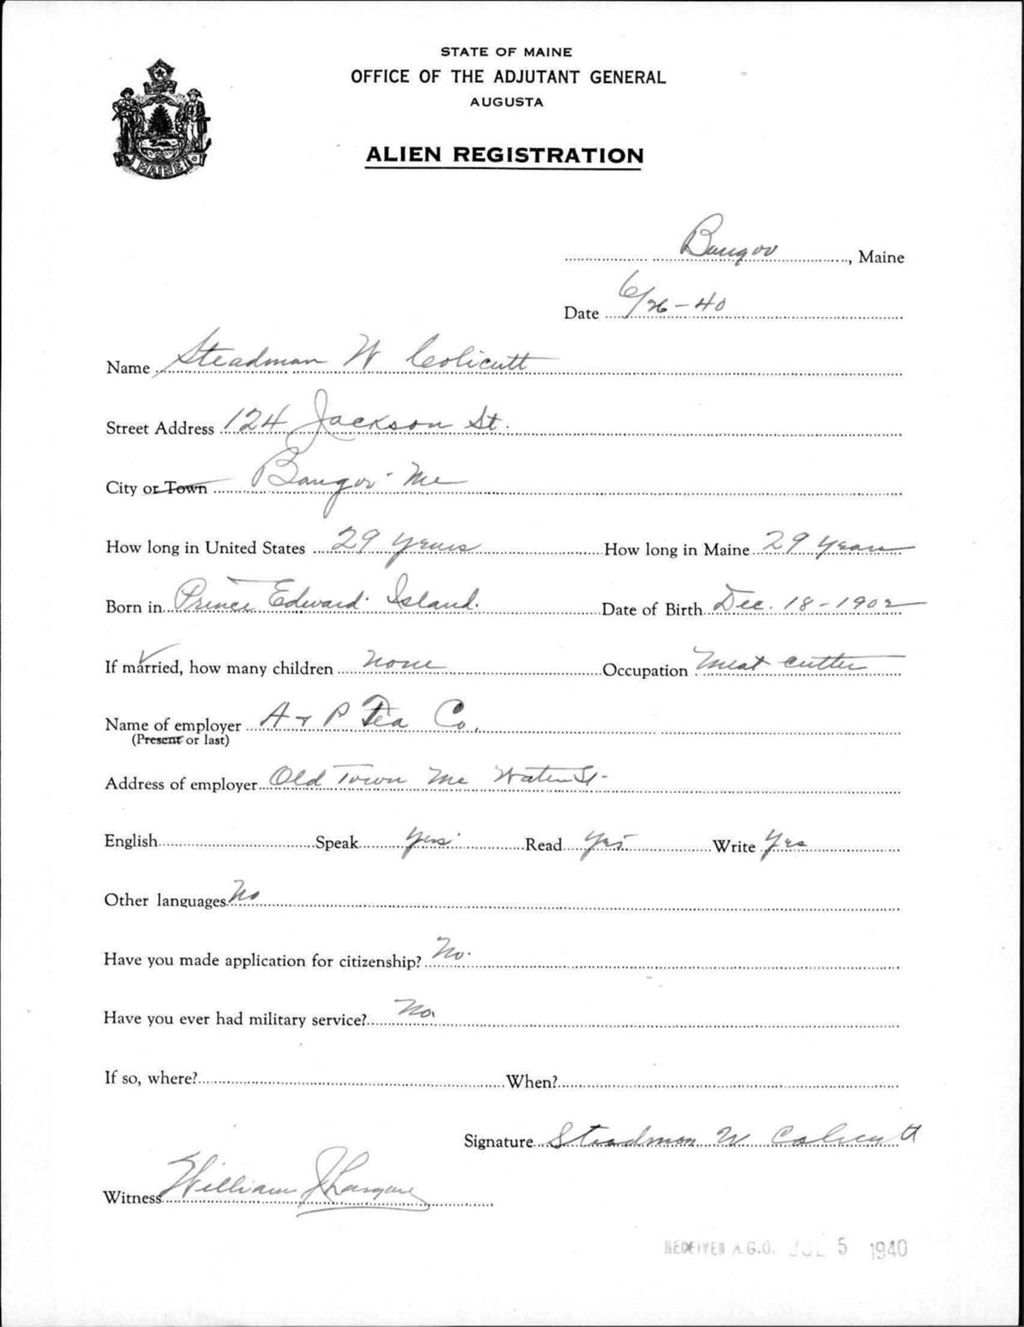 STATE OF MAINE
OFFICE OF THE ADJUTANT GENERAL
AUGUSTA
ALIEN REGISTRATION
MAINE
Bangor, Maine
Date 6/26-40
Name Steadman W Colicutt
Street Address 124 Jackson St.
City or Town Bangor Me
How long in United States 29 years How long in Maine 29 years
Born in Prince Edward Island. Date of Birth Dec. 18-1902
If married, how many children none Occupation Meat cutter
Name of employer A & P Tea Co.
(Present or last)
Address of employer Old Town Me Water St-
English Speak yes Read yes Write Yes
Other languages No
Have you made application for citizenship? No.
Have you ever had military service? No.
If so, where? When?
Signature Steadman W Colicutt
Witness William J
RECEIVED A.G.O. JUL 5 1940